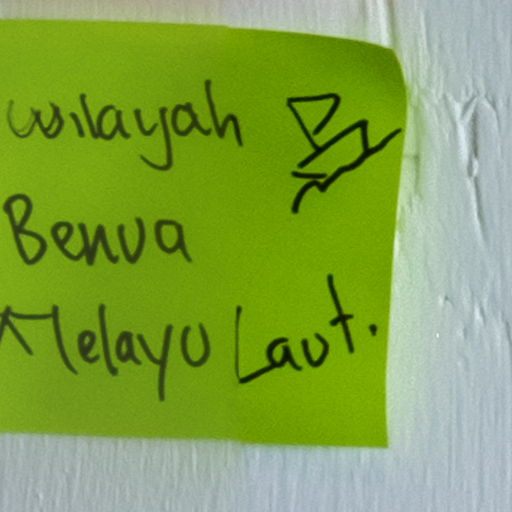 wilayah
Benua
Melayu Laut.